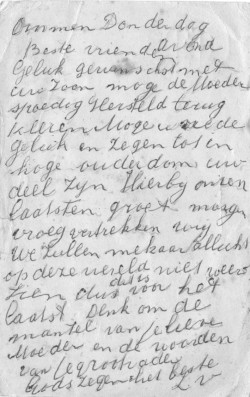 Ommen Donderdag
Beste vriend Arend
Geluk gewenscht met
uw zoon moge de Moeder
spoedig Hersteld terug
keeren Moge vrede
geluk en zegen tot in
hoge ouderdom uw
deel zyn Hierby onzen
laatsten groet morgen
vroeg vertrekken wy
We zullen mekaar allicht
op deze wereld niet weer
zien dus dit is voor het
laatst Denk om de
mantel van
Moeder en de woorden
van
Gods zegen het beste